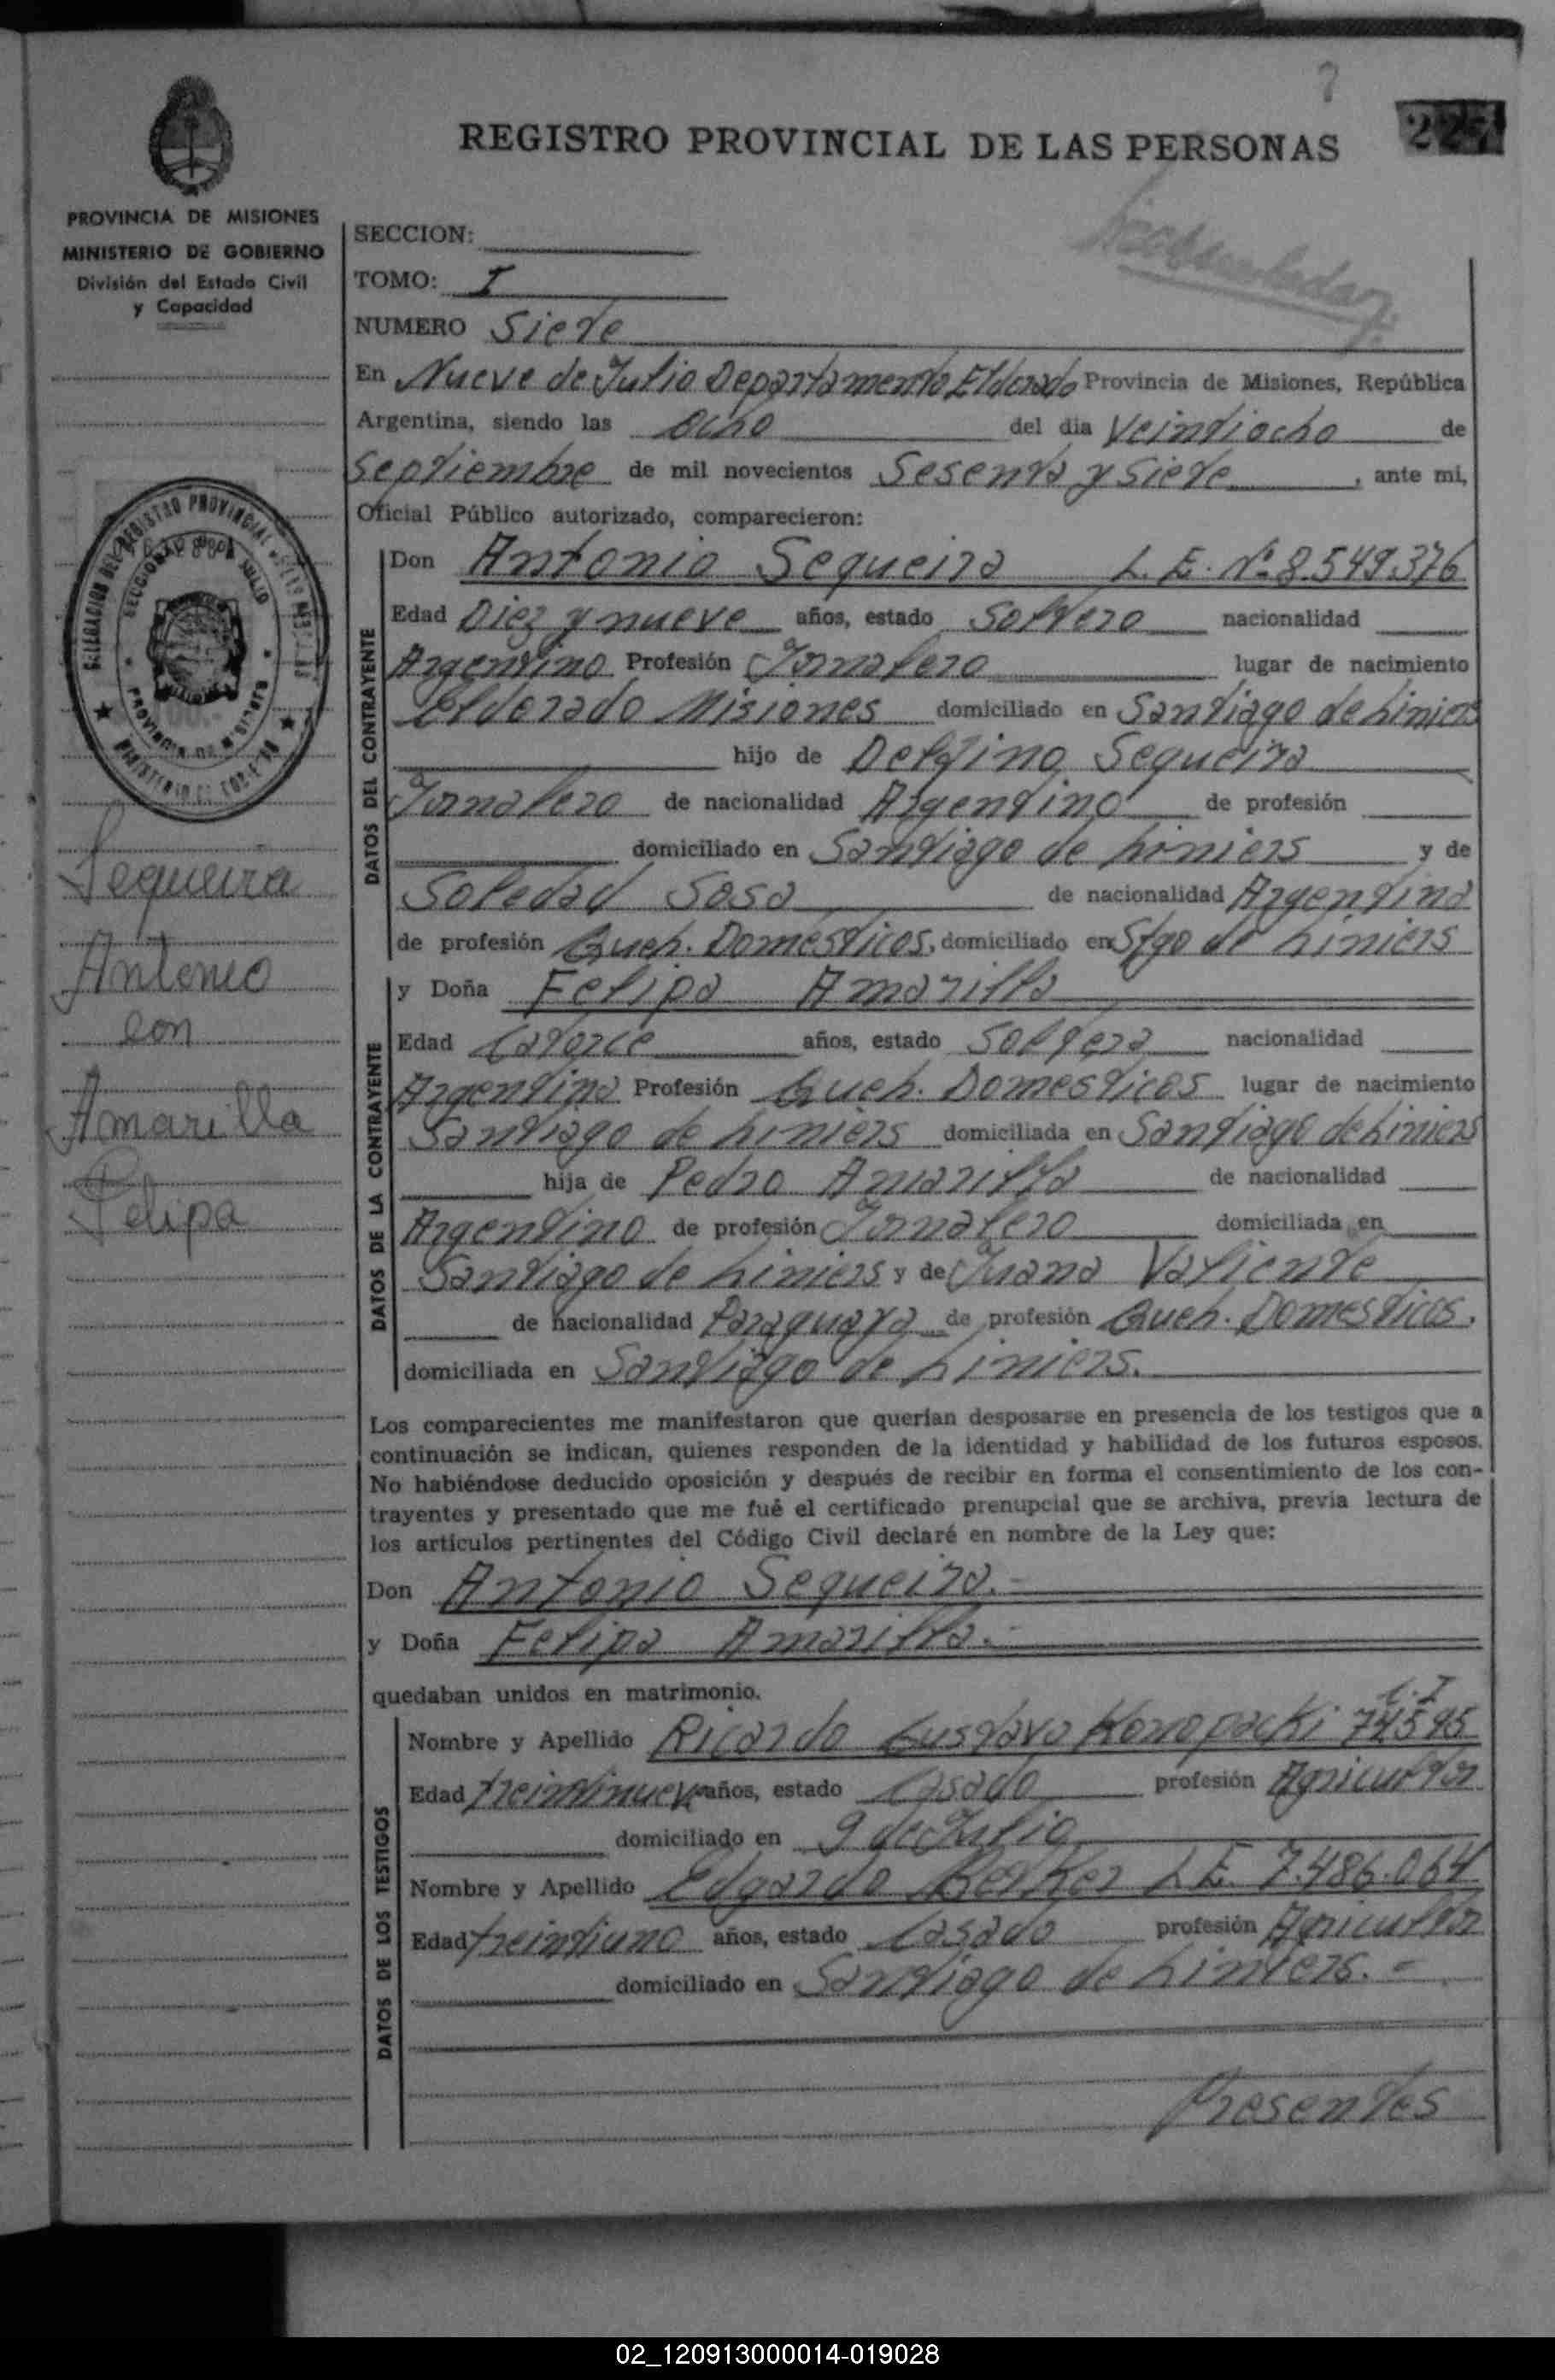 7
REGISTRO PROVINCIAL DE LAS PERSONAS
227
PROVINCIA DE MISIONES
MINISTERIO DE GOBIERNO
División del Estado Civil
y Capacidad
SECCION:
TOMO: I
NUMERO Siete
En Nueve de Julio Departamento Eldorado Provincia de Misiones, República
Argentina, siendo las Ocho del dia Veintiocho de
Septiembre de mil novecientos Sesenta y Siete, ante mi,
Oficial Público autorizado, comparecieron:
DATOS DEL CONTRAYENTE
Don Antonio Sequeira L.E. Nº 8.549.376
Edad Diez y nueve años, estado Soltero nacionalidad
Argentino Profesión Jornalero lugar de nacimiento
Eldorado Misiones domiciliado en Santiago de Liniers
hijo de Delfino Sequeira
Jornalero de nacionalidad Argentino de profesión
domiciliado en Santiago de Liniers y de
Soledad Sosa de nacionalidad Argentina
de profesión Queh. Domesticos, domiciliado en Stgo de Liniers
DATOS DE LA CONTRAYENTE
y Doña Felipa Amarilla
Edad Catorce años, estado Soltera nacionalidad
Argentina Profesión Queh. Domesticos lugar de nacimiento
Santiago de Liniers domiciliada en Santiago de Liniers
hija de Pedro Amarilla de nacionalidad
Argentino de profesión Jornalero domiciliada en
Santiago de Liniers y de Juana Valiente
de nacionalidad Paraguaya de profesión Queh. Domesticos.
domiciliada en Santiago de Liniers.
Los comparecientes me manifestaron que querían desposarse en presencia de los testigos que a
continuación se indican, quienes responden de la identidad y habilidad de los futuros esposos.
No habiéndose deducido oposición y después de recibir en forma el consentimiento de los con-
trayentes y presentado que me fué el certificado prenupcial que se archiva, previa lectura de
los artículos pertinentes del Código Civil declaré en nombre de la Ley que:
Don Antonio Sequeira.-
y Doña Felipa Amarilla.-
quedaban unidos en matrimonio.
DATOS DE LOS TESTIGOS
C.I
Nombre y Apellido Ricardo Gustavo Konopacki 74595
Edad treintinueve años, estado Casado profesión Agricultor
domiciliado en 9 de Julio
Nombre y Apellido Edgardo Berker L.E. 7.486.064
Edad treintiuno años, estado Casado profesión Agricultor
domiciliado en Santiago de Liniers.-
Presentes
DELEGACION DEL REGISTRO PROVINCIAL DE LAS PERSONAS
PROVINCIA DE MISIONES
MINISTERIO DE GOBIERNO
Sequeira
Antonio
con
Amarilla
Felipa
02_120913000014-019028